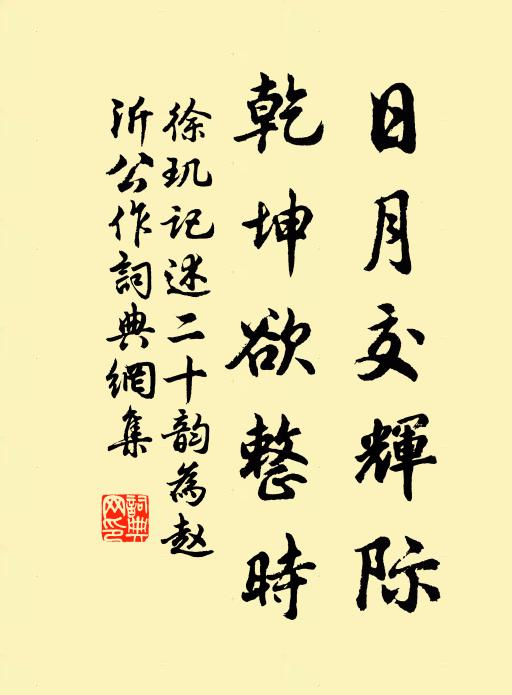 日月交輝际
乾坤欲整時
徐玑记述二十韵為赵
沂公作詞典網集
詞典
网印